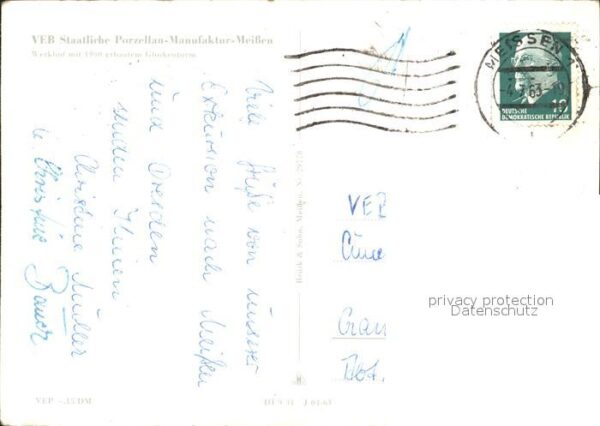 VEB Staatliche Porzellan-Manufaktur-Meißen
Werkhof mit 1960 erbautem Glockenturm
Viele Grüße von unserer
Exkursion nach Meißen
und Dresden
senden Ihnen
Christine Müller
u. Christine Bauer
Brück & Sohn, Meißen, Nr.
MEISSEN 1
DEUTSCHE
DEMOKRATISCHE REPUBLIK
10
VEB
privacy protection
Datenschutz
Abt.
VEP -.15 DM